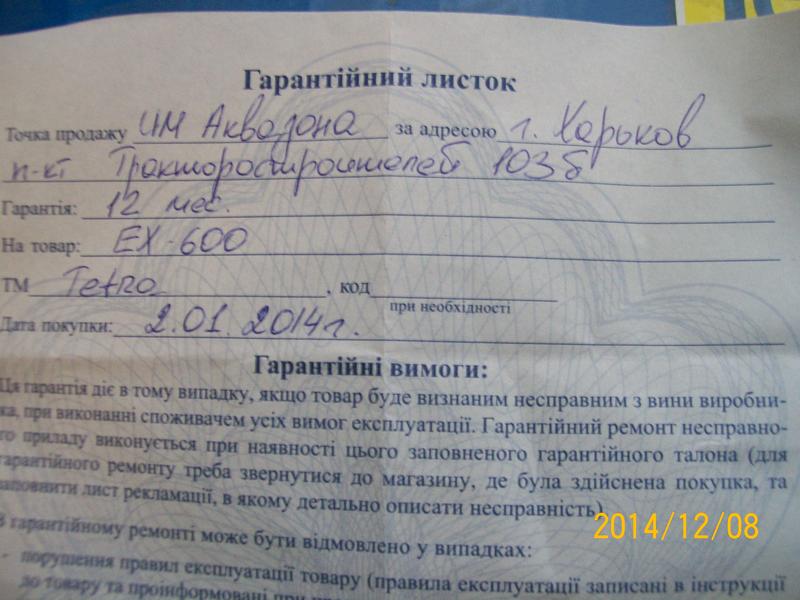 Гарантійний листок
Точка продажу ИМ Аквазона за адресою г. Харьков
п-кт Тракторостроителей 103б
Гарантія: 12 мес.
На товар: EX-600
ТМ Tetra, код
при необхідності
Дата покупки: 2.01.2014г.
Гарантійні вимоги:
Ця гарантія діє в тому випадку, якщо товар буде визнаним несправним з вини виробни-
ка, при виконанні споживачем усіх вимог експлуатації. Гарантійний ремонт несправно-
го приладу виконується при наявності цього заповненого гарантійного талона (для
гарантійного ремонту треба звернутися до магазину, де була здійснена покупка, та
заповнити лист рекламації, в якому детально описати несправність)
В гарантійному ремонті може бути відмовлено у випадках:
- порушення правил експлуатації товару (правила експлуатації записані в інструкції
до товару та проінформовані при
2014/12/08